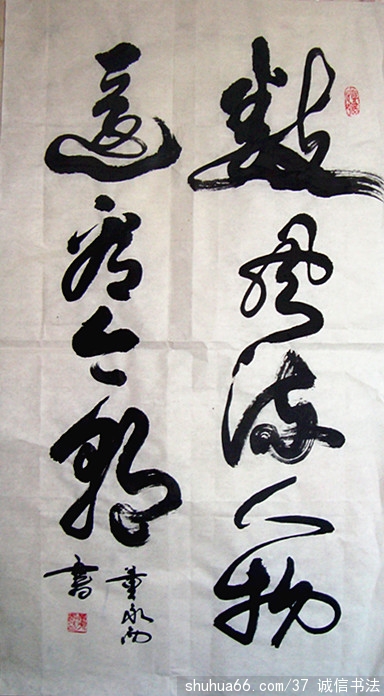 数风流人物
还看今朝
董永西
书
shuhua66.com/37 诚信书法